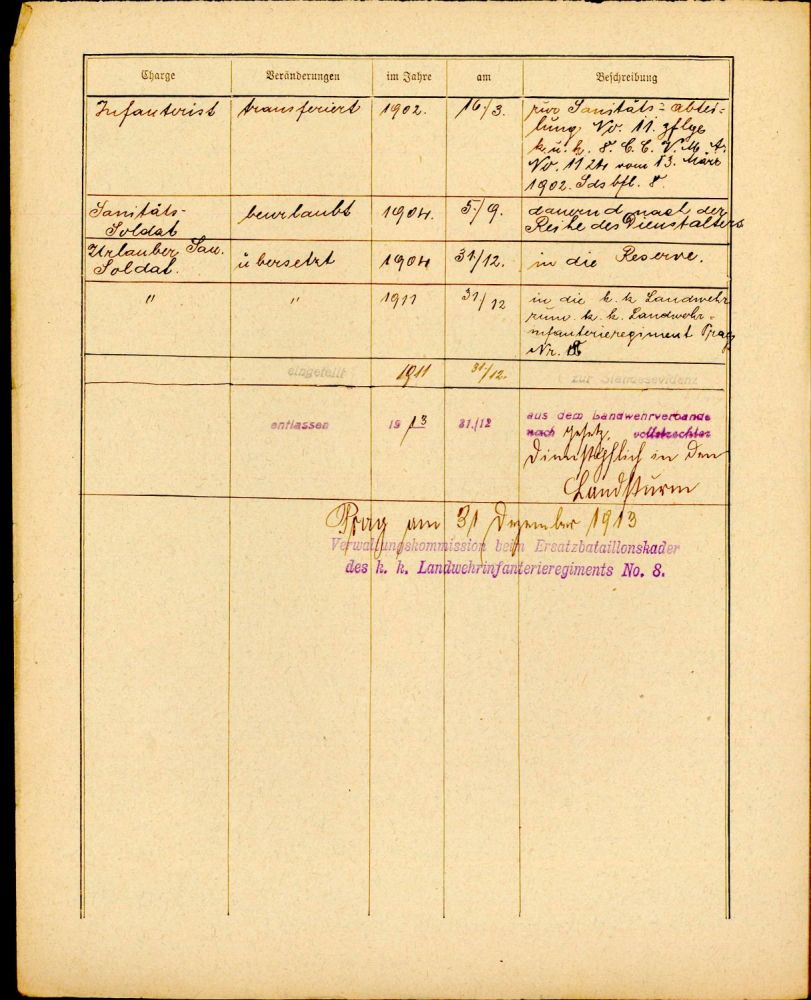 Charge Veränderungen im Jahre am Beschreibung
Infanterist transferiert 1902. 16./3. zur Sanitäts-abtei-
lung No. 11. zflge
k. u. k. 8. C. C. V. M. A.
No. 1124 vom 13. März
1902. Sdsbfl. 8.
Sanitäts- beurlaubt 1904. 5./9. dauernd nach der
Soldat Reihe des Dienstalters
Urlauber San. übersetzt 1904 31/12. in die Reserve.
Soldat.
" " 1911 31/12 in die k. k. Landwehr
zum k. k. Landwehr-
infanterieregiment Prag
Nr. 8
eingeteilt 1911 31/12. zur Standesevidenz
entlassen 1913 31./12 aus dem Landwehrverbande
nach gesetz. vollstreckter
Dienstpflich in den
Landsturm
Prag am 31 Dezember 1913
Verwaltungskommission beim Ersatzbataillonskader
des k. k. Landwehrinfanterieregiments No. 8.